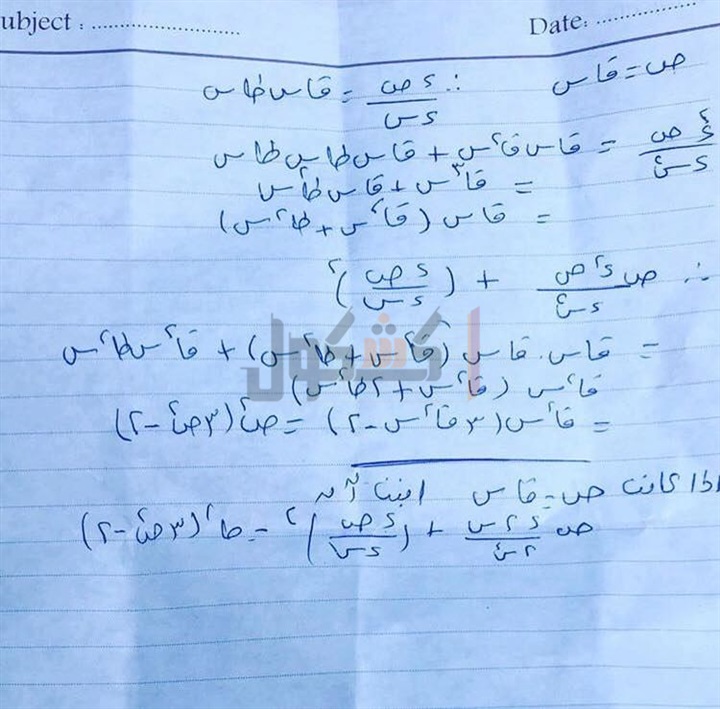 ubject : ........................ Date: ........................
ص = قاس ∴ ءص/ءس = قاس طاس
ء²ص/ءس² = قاس قا²س + قاس طاس طاس
= قا³س + قاس طا²س
= قاس (قا²س + طا²س)
∴ ص ء²ص/ءس² + (ءص/ءس)²
= قاس . قاس (قا²س + طا²س) + قا²س طا²س
قا²س (قا²س + ٢طا²س)
= قا²س (٣قا²س - ٢) = ص² (٣ص² - ٢)
اذا كانت ص = قاس اثبت أن
ص ء٢س/٢س² + (ءص/ءس)² = ص² (٣ص² - ٢)
اكشكول